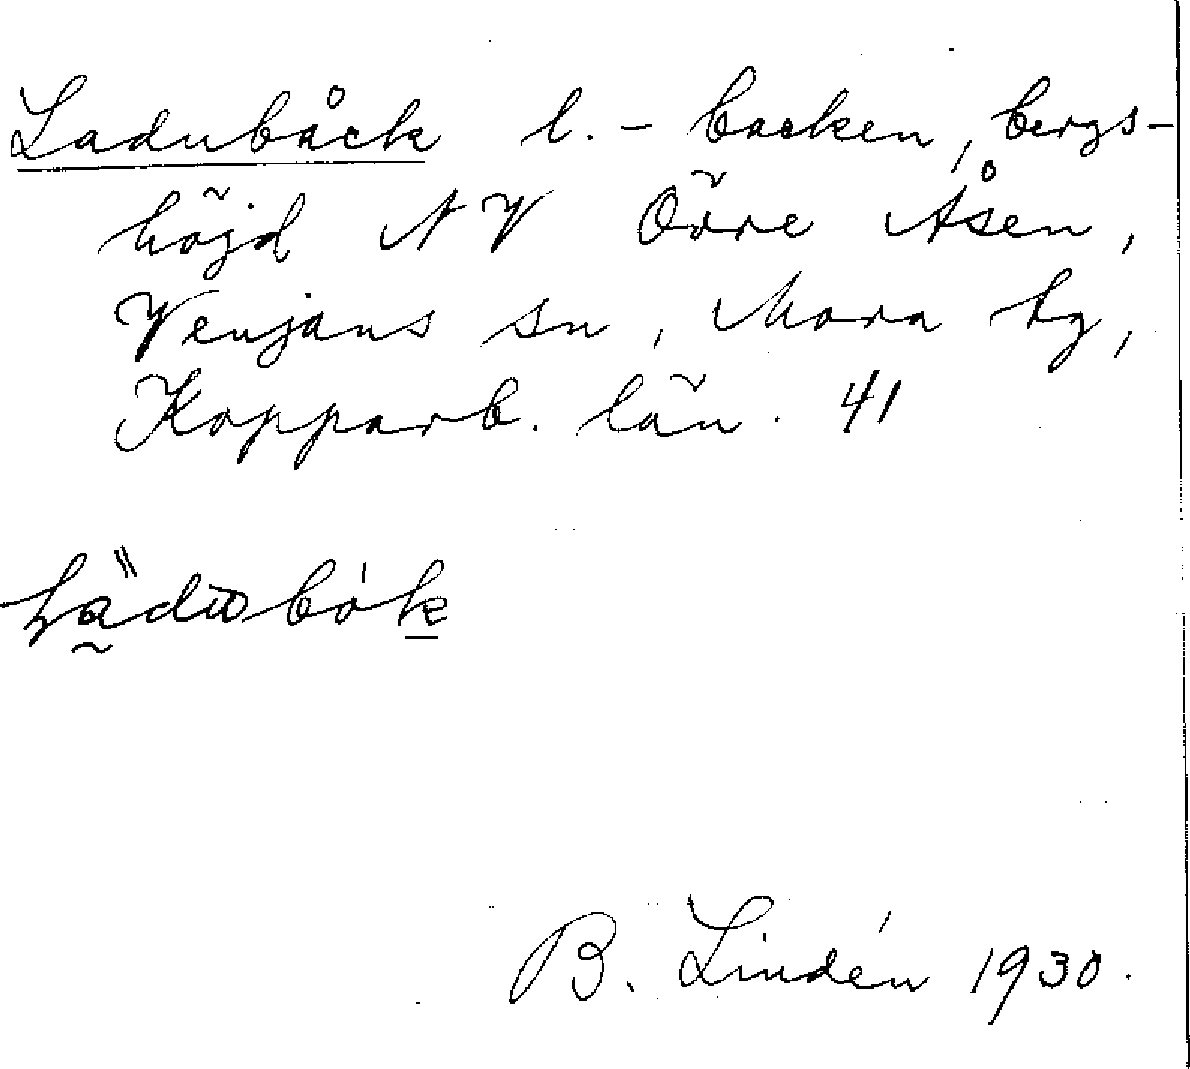 Ladubåck l. - backen, bergs-
höjd NV Övre Åsen,
Venjans sn, Mora tg,
Kopparb. län. 41
B. Lindén 1930.